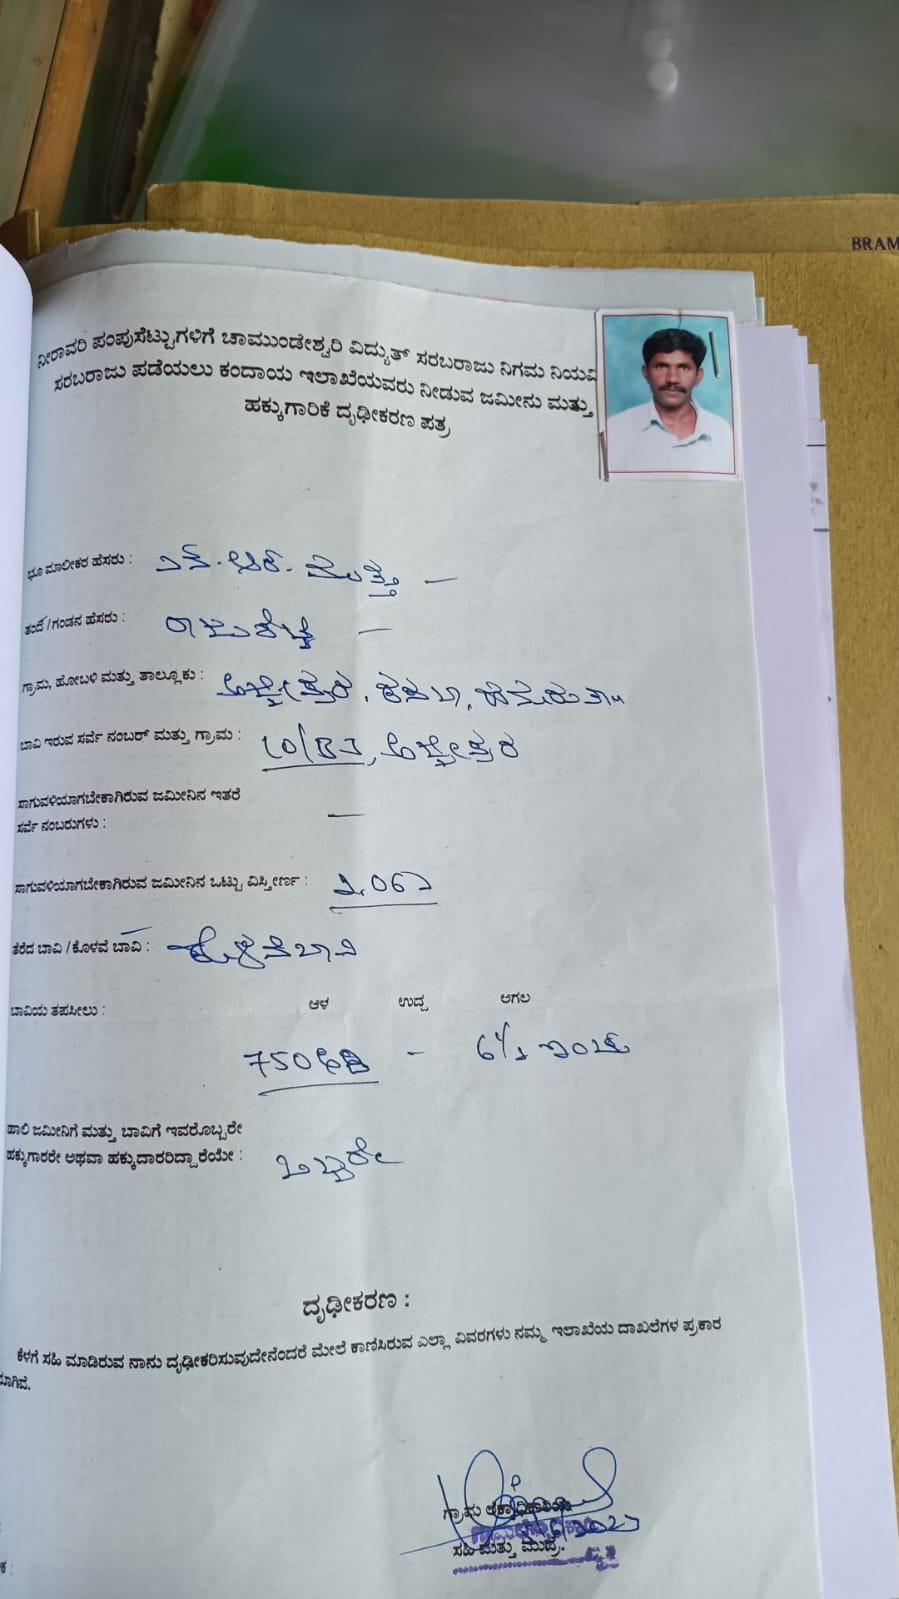 BRAM
ನೀರಾವರಿ ಪಂಪುಸೆಟ್ಟುಗಳಿಗೆ ಚಾಮುಂಡೇಶ್ವರಿ ವಿದ್ಯುತ್ ಸರಬರಾಜು ನಿಗಮ ನಿಯಮಿ
ಸರಬರಾಜು ಪಡೆಯಲು ಕಂದಾಯ ಇಲಾಖೆಯವರು ನೀಡುವ ಜಮೀನು ಮತ್ತು
ಹಕ್ಕುಗಾರಿಕೆ ದೃಢೀಕರಣ ಪತ್ರ
ಭೂ ಮಾಲೀಕರ ಹೆಸರು : ಎನ್. ಆರ್. —
ತಂದೆ/ಗಂಡನ ಹೆಸರು : —
ಗ್ರಾಮ, ಹೋಬಳಿ ಮತ್ತು ತಾಲ್ಲೂಕು : ಕಸಬಾ,
ಬಾವಿ ಇರುವ ಸರ್ವೆ ನಂಬರ್ ಮತ್ತು ಗ್ರಾಮ :
ಸಾಗುವಳಿಯಾಗಬೇಕಾಗಿರುವ ಜಮೀನಿನ ಇತರೆ
ಸರ್ವೆ ನಂಬರುಗಳು : —
ಸಾಗುವಳಿಯಾಗಬೇಕಾಗಿರುವ ಜಮೀನಿನ ಒಟ್ಟು ವಿಸ್ತೀರ್ಣ :
ತೆರೆದ ಬಾವಿ /ಕೊಳವೆ ಬಾವಿ : ಕೊಳವೆಬಾವಿ
ಬಾವಿಯ ತಪಸೀಲು : ಆಳ ಉದ್ದ ಅಗಲ
750 ಅಡಿ - 6½ ಇಂಚು
ಹಾಲಿ ಜಮೀನಿಗೆ ಮತ್ತು ಬಾವಿಗೆ ಇವರೊಬ್ಬರೇ
ಹಕ್ಕುಗಾರರೇ ಅಥವಾ ಹಕ್ಕುದಾರರಿದ್ದಾರೆಯೇ : ಒಬ್ಬರೇ
ದೃಢೀಕರಣ :
ಕೆಳಗೆ ಸಹಿ ಮಾಡಿರುವ ನಾನು ದೃಢೀಕರಿಸುವುದೇನೆಂದರೆ ಮೇಲೆ ಕಾಣಿಸಿರುವ ಎಲ್ಲಾ ವಿವರಗಳು ನಮ್ಮ ಇಲಾಖೆಯ ದಾಖಲೆಗಳ ಪ್ರಕಾರ
ಯಾಗಿವೆ.
ಗ್ರಾಮ ಲೆಕ್ಕಾಧಿಕಾರಿಯ
ಸಹಿ ಮತ್ತು ಮುದ್ರೆ.